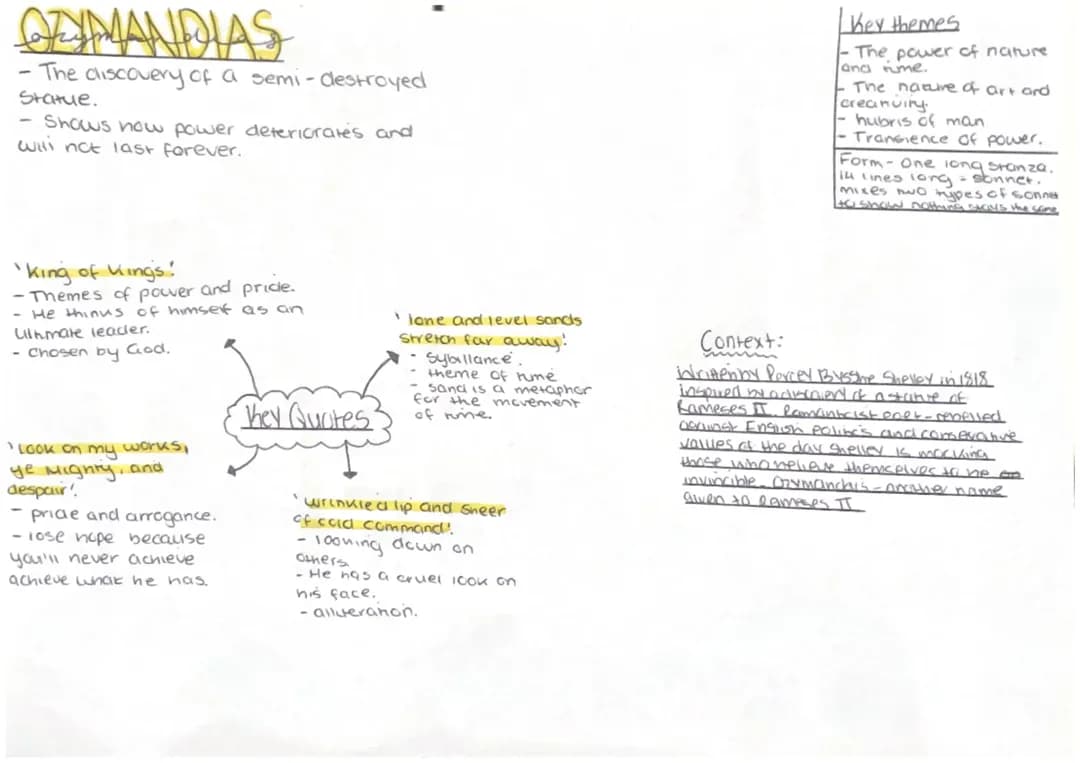 OZYMANDIAS
Ozymandias
- The discovery of a semi-destroyed
statue.
- Shows how power deteriorates and
will not last forever.
Key themes
- The power of nature
and time.
- The nature of art and
creativity.
- hubris of man
- Transience of power.
Form - One long stanza.
14 lines long = sonnet.
mixes two types of sonnet
to show nothing stays the same
'King of Kings'.
- Themes of power and pride.
- He thinks of himself as an
Ultimate leader.
- Chosen by God.
'lone and level sands
stretch far away'.
- Sybillance.
- theme of time
- sand is a metaphor
for the movement
of time.
Key Quotes
'Look on my works,
ye Mighty, and
despair'.
- pride and arrogance.
- lose hope because
you'll never achieve
achieve what he has.
'wrinkled lip and sneer
of cold command'.
- looning down on
others
- He has a cruel look on
his face.
- alliteration.
Context:
Written by Percey Bysshe Shelley in 1818
inspired by a discovery of a statue of
Rameses II. Romanticist poet - rebelled
against English politics and conservative
values of the day Shelley is mocking
those who believe themselves to be
invincible. Ozymandias - another name
given to Rameses II